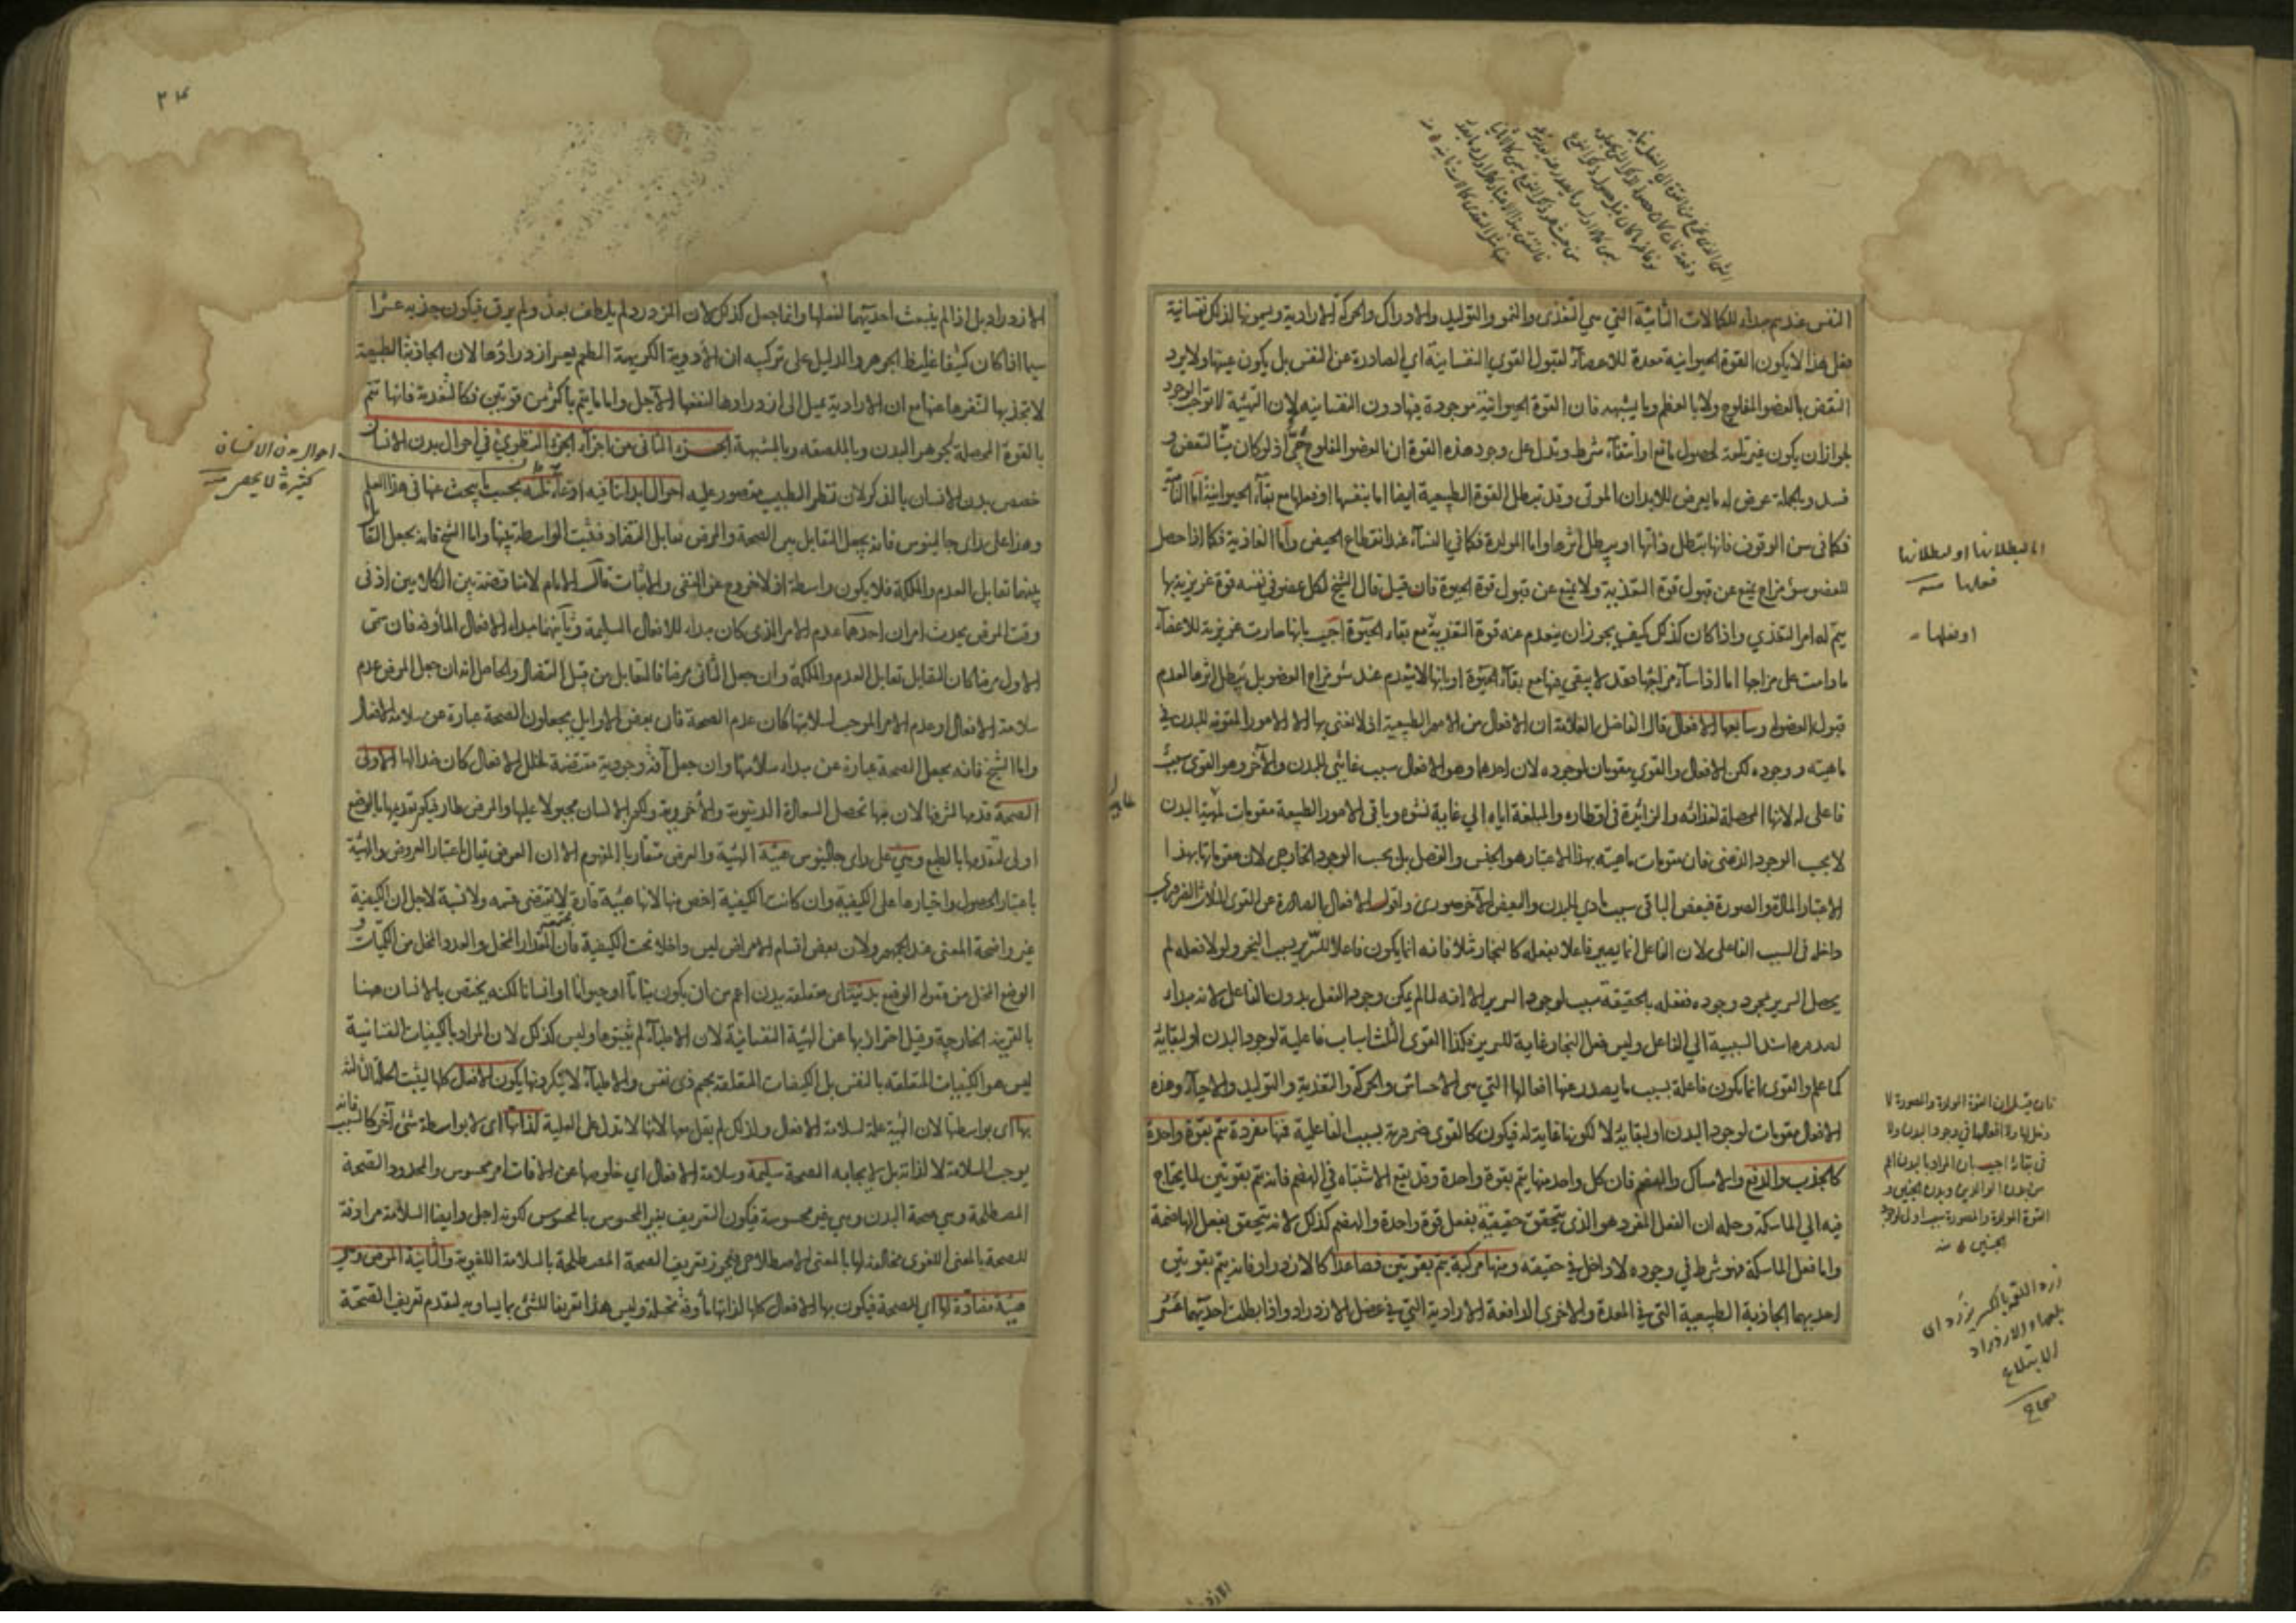 النفس عندهم مبداء للكمالات الثانية التي هي التغذى والنمو والتوليد والادراك والحركة الارادية ويسمونها لذلك نفسانية
فعلى هذا لا يكون القوة الحيوانية معدة للاعضاء لقبول القوى النفسانية اي الصادرة عن النفس بل يكون عينها ولا يرد
النقض بالعضو المفلوج ولا بالعظم وما يشبهه فان القوة الحيوانية موجودة فيها دون النفسانية لان التهيئة لا توجب الوجود
لجواز ان يكون غير تامة لحصول مانع او انتفاء شرط ويدل على وجود هذه القوة ان العضو المفلوج حى اذ لو كان ميتا لتعفن و
فسد وبالجملة عرض له ما يعرض للابدان الموتى وقد تبطل القوة الطبيعية ايضا اما بنفسها او فعلها مع بقاء الحيوانية اما
فكما فى سن الوقوف فانها تبطل ذاتها او يبطل اثرها واما المولدة فكما في النساء عند انقطاع الحيض واما الغاذية فكما اذا حصل
للعضو سوء مزاج يمنع عن قبول قوة التغذية ولا يمنع عن قبول قوة الحيوة فان قيل قال الشيخ لكل عضو في نفسه قوة غريزية بها
يتم له امر التغذي واذا كان كذلك كيف يجوز ان ينعدم عنه قوة التغذية مع بقاء الحيوة اجيب بانها صارت غريزية للاعضاء
ما دامت على مزاجها اما اذا ساء مزاجها فقد لا يبقى فيها مع بقاء الحيوة او بانها لا ينعدم عند سوء مزاج العضو بل يبطل اثرها لعدم
قبول العضو له وسابعها الافعال قال الفاضل العلامة ان الافعال من الامور الطبيعية اذ لا نعنى بها الا الامور المقومة للبدن في
ماهيته ووجوده لكن الافعال والقوى مقومان لوجوده لان احدهما وهو الافعال سبب غائى للبدن والآخر وهو القوى سبب
فاعلى له لانها المحصلة لغذائه والزائدة فى اقطاره والمبلغة اياه الي غاية نشوه وباقى الامور الطبيعة مقومات لمهية البدن
لا بحسب الوجود الذهنى فان مقومات ماهيته بهذا الاعتبار هو الجنس والفصل بل بحسب الوجود الخارجى لان مقوماتها بهذا
الاعتبار المادة والصورة فبعض الباقى سبب مادي للبدن والبعض الآخر صورى واقول الافعال الصادرة عن القوى الثلاث
داخلة فى السبب الفاعلى لان الفاعل انما يصير فاعلا بفعله كالنجار مثلا فانه انما يكون فاعلا للسرير بسبب النجر ولولا فعله لم
يحصل السرير بمجرد وجوده ففعله بالحقيقة سبب لوجود السرير الا انه لما لم يمكن وجود الفعل بدون الفاعل لانه مبداء
لصدوره اسند السببية الي الفاعل وليس فعل النجار غاية للسرير وكذا القوى الثلث اسباب فاعلية لوجود البدن او لبقائه
كما علم والقوى انما يكون فاعلة بسبب ما يصدر عنها افعالها التى هى الاحساس والحركة والتغذية والتوليد والاحياء وهذه
الافعال مقومات لوجود البدن او لبقائه لا لكونها غاية له فيكون كالقوى ضرورية بسبب الفاعلية فمنها مفردة تتم بقوة واحدة
كالجذب والدفع والامساك والهضم فان كل واحد منها يتم بقوة واحدة وقد يقع الاشتباه في الهضم فانه يتم بقوتين لما يحتاج
فيه الي الماسكة وحله ان الفعل المفرد هو الذى يتحقق حقيقته بفعل قوة واحدة والهضم كذلك لانه يتحقق بفعل الهاضمة
واما فعل الماسكة فهو شرط في وجوده لا داخل في حقيقته ومنها مركبة يتم بقوتين فصاعدا كالازدراد فانه يتم بقوتين
احديهما الجاذبة الطبيعية التى في المعدة والاخرى الدافعة الارادية التى في عضل الازدراد واذا بطلت احديهما عسر
اما لبطلانها او لبطلان
فعلها
او فعلها
فان قيل ان القوة المولدة والمصورة لا
دخل لها ولا افعالها في وجود البدن ولا
فى بقائه اجيب بان المراد بالبدن اعم
من بدن الوالدين وبدن الجنين و
القوة المولدة والمصورة سبب اولى لوجود
الجنين منه
زرد اللقمة بالكسر يزرد اى
بلعها والازدراد
الابتلاع
صحاح
٢٤
الازدراد بل اذا لم ينبعث احديهما لفعلها وانما جعل كذلك لان المزدرد لم يلطف بعد ولم يرق فيكون جذبه عسرا
سيما اذا كان كثيفا غليظ الجوهر والدليل على تركيبه ان الادوية الكريهة الطعم يعسر ازدرادها لان الجاذبة الطبيعية
لا تجذبها لتنفرها عنها مع ان الارادية تميل الى ازدرادها لنفعها الآجل واما ما يتم باكثر من قوتين فكالتغذية فانها تتم
بالقوة المحصلة لجوهر البدن وبالملصقه وبالمشبهة الجزء الثانى من اجزاء الجزء النظرى في احوال بدن الانسان
خصص بدن الانسان بالذكر لان نظر الطبيب مقصور عليه احوال ابداننا فيه ادعاء ثلثة بحسب ما يبحث عنها فى هذا العلم
وهذا على راى جالينوس فانه يجعل التقابل بين الصحة والمرض تقابل التضاد فتثبت الواسطة بينها واما الشيخ فانه يجعل التقابل
بينهما تقابل العدم والملكة فلا يكون واسطة اذ لا خروج عن النفى والاثبات قال الامام لا مناقضة بين الكلامين اذ فى
وقت المرض يحدث امران احدهما عدم الامر الذى كان مبداء للافعال السليمة وثانيهما مبداء الافعال المأوفة فان سمى
الاول مرضا كان التقابل تقابل العدم والملكة وان جعل الثانى مرضا فالتقابل من قبيل التضاد والحاصل انه ان جعل المرض عدم
سلامة الافعال او عدم الامر الموجب لسلامتها كان عدم الصحة فان بعض الاوايل يجعلون الصحة عبارة عن سلامة الافعال
واما الشيخ فانه يجعل الصحة عبارة عن مبداء سلامتها وان جعل آفة وجودية مقتضية لخلل الافعال كان ضدا لها الاولى
الصحة قدمها لشرفها لان بها تحصل السعادة الدنيوية والأخروية ولكون الانسان مجبولا عليها والمرض طار فيكون تقديمها بالوضع
اولى لتقدمها بالطبع وهى على راى جالينوس هيئة الهيئة والعرض متقاربا المفهوم الا ان العرض يقال باعتبار العروض والهيئة
باعتبار الحصول واختيارها على الكيفية وان كانت الكيفية اخص منها لانها هيئة قارة لا تقتضى قسمة ولا نسبة لاجل ان الكيفية
غير واضحة المعنى عند الجمهور ولان بعض اقسام الامراض ليس داخلا تحت الكيفية فان المقدار المخل والعدد المخل من الكميات و
الوضع المخل من مقولة الوضع بدنية اى متعلقة ببدن اعم من ان يكون نباتا او حيوانا او انسانا لكنه يختص بالانسان ههنا
بالقرينة الخارجية وقيل احترز بها عن الهيئة النفسانية لان الاطباء لم يثبتوها وليس كذلك لان المراد بالكيفيات النفسانية
ليس هو الكيفيات المتعلقة بالنفس بل الكيفيات المتعلقة بجسم ذى نفس والاطباء لا ينكرونها يكون الافعال كلها ليثبت الحالة الثالثة
بها اى بواسطتها لان الهيئة علة لسلامة الافعال ولذلك لم يقل معها لانها لا تدل على العلية لذاتها اى لا بواسطة شئ آخر كالسبب فانه
يوجب السلامة لا لذاته بل لايجابه الصحة سليمة وسلامة الافعال اي خلوصها عن الافات امر محسوس والمحدود الصحة
المصطلحة وهي صحة البدن وهي غير محسوسة فيكون التعريف بغير المحسوس بالمحسوس لكونه اجلى وايضا السلامة مرادفة
للصحة بالمعنى اللغوى مخالفة لها بالمعنى الاصطلاحى فيجوز تعريف الصحة المصطلحة بالسلامة اللغوية والثانية المرض وهو
هيئة مضادة لها اي للصحة فيكون بها الافعال كلها لذاتها مأوفة مختلة وليس هذا تعريفا للشئ بما يساويه لتقدم تعريف الصحة
احوال بدن الانسان
كثيرة لا يحصر منه